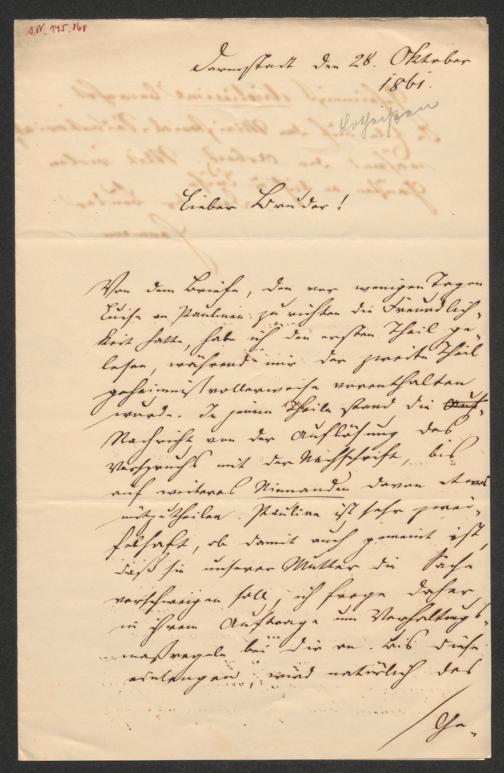 A.N. 145.868
Darmstadt den 28. Oktober
1861.
Lieber Bruder!
Von dem Briefe, den vor wenigen Tagen
Luise an Paulinen zu richten die Freundlich-
keit hatte, hab ich den ersten Theil ge-
lesen, während mir der zweite Theil
geheimnißvollerweise vorenthalten
wurde. In jenem Theile stand die
Nachricht von der Auflösung des
Verspruchs mit der Nachschrift, bis
auf weiteres Niemanden davon etwas
mitzutheilen. Pauline ist sehr zwei-
felhaft, ob damit auch gemeint ist,
daß sie unserer Mutter die Sache
verschweigen soll, ich frage daher
in ihrem Auftrage um Verhaltungs-
maßregeln bei dir an. Bis diese
einlangen, wird natürlich das
/Ge-